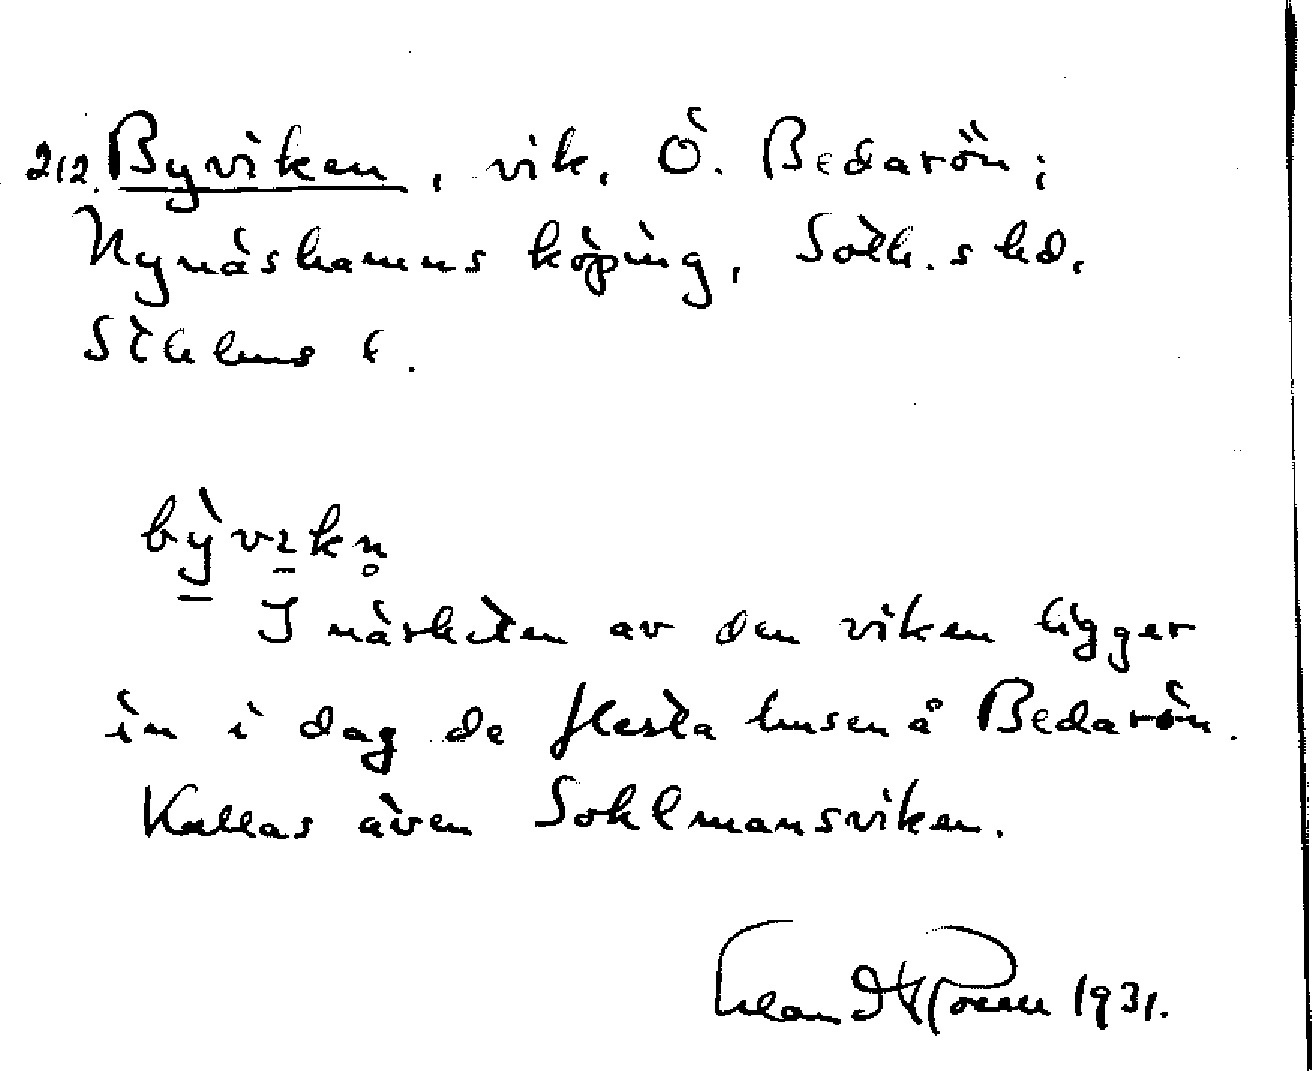 212. Byviken, vik, Ö. Bedarön;
Nynäshamns köping, Soth.s hd,
Sthlms l.
bỳ̠vı̠kn̥
I närheten av den viken ligger
än i dag de flesta husen å Bedarön.
Kallas även Sohlmansviken.
1931.